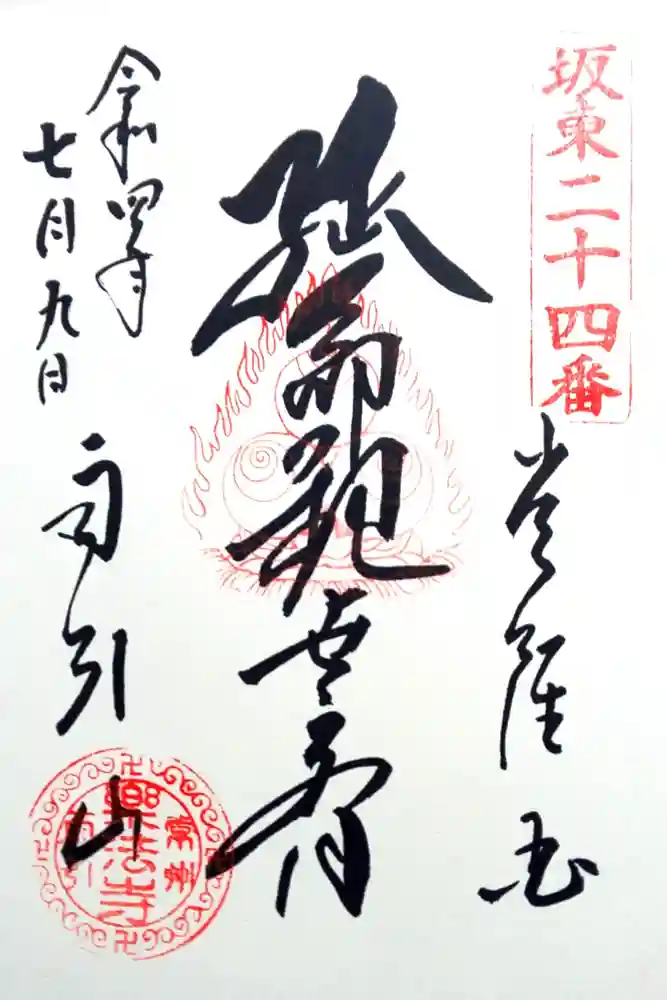 坂東二十四番
常陸国
延命観世音
令和四年
七月九日
雨引山
常州
樂法寺
雨引